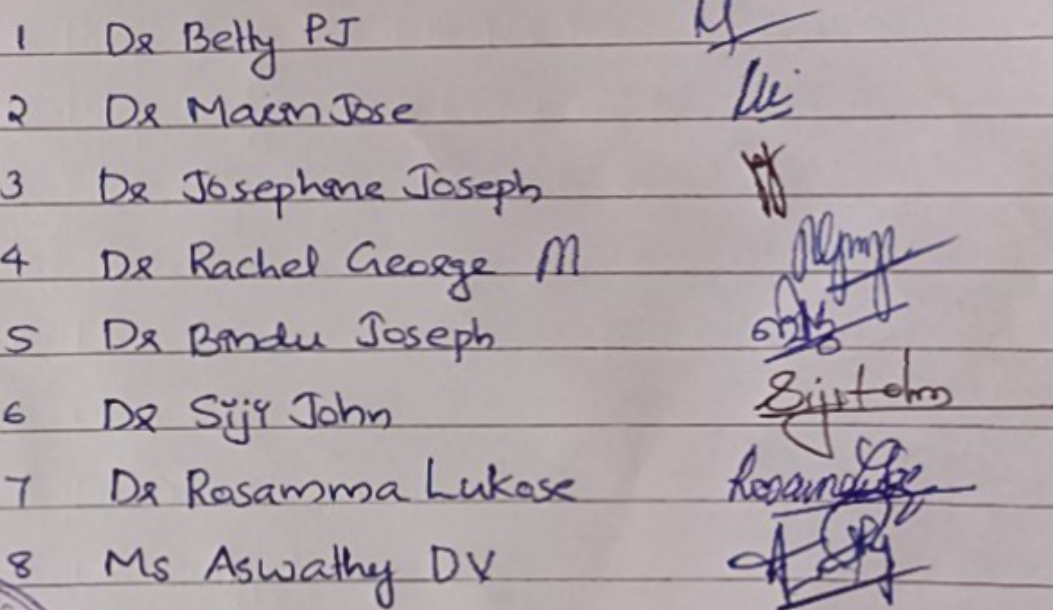 1 Dr Betty PJ
2 Dr Maem Jose
3 Dr Josephine Joseph
4 Dr Rachel George M
5 Dr Bindu Joseph
6 Dr Siji John Sijijohn
7 Dr Rosamma Lukose
8 Ms Aswathy DV